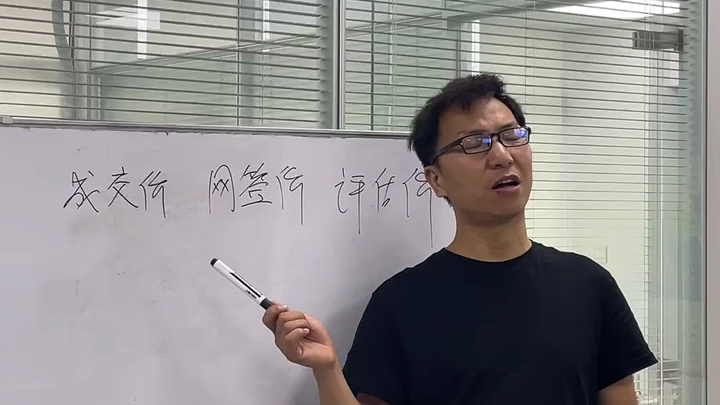 成交价 网签价 评估价